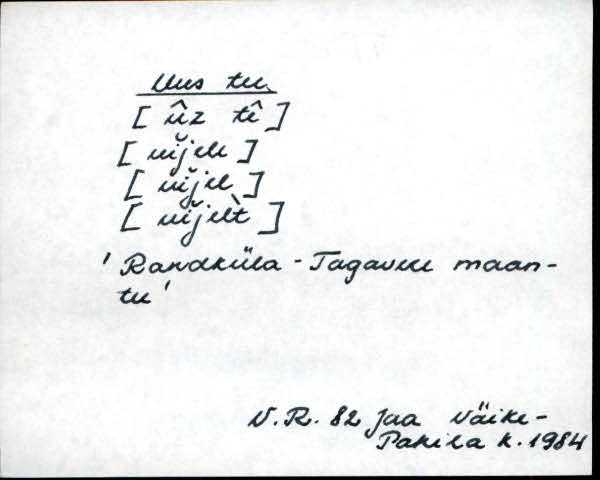 Uus tee
[ ûz tê ]
[ uijele ]
[ uijel ]
[ uijelt ]
' Randküla - Tagavere maan-
tee '
V. R. 82 Jaa Väike-
Pahila k. 1984